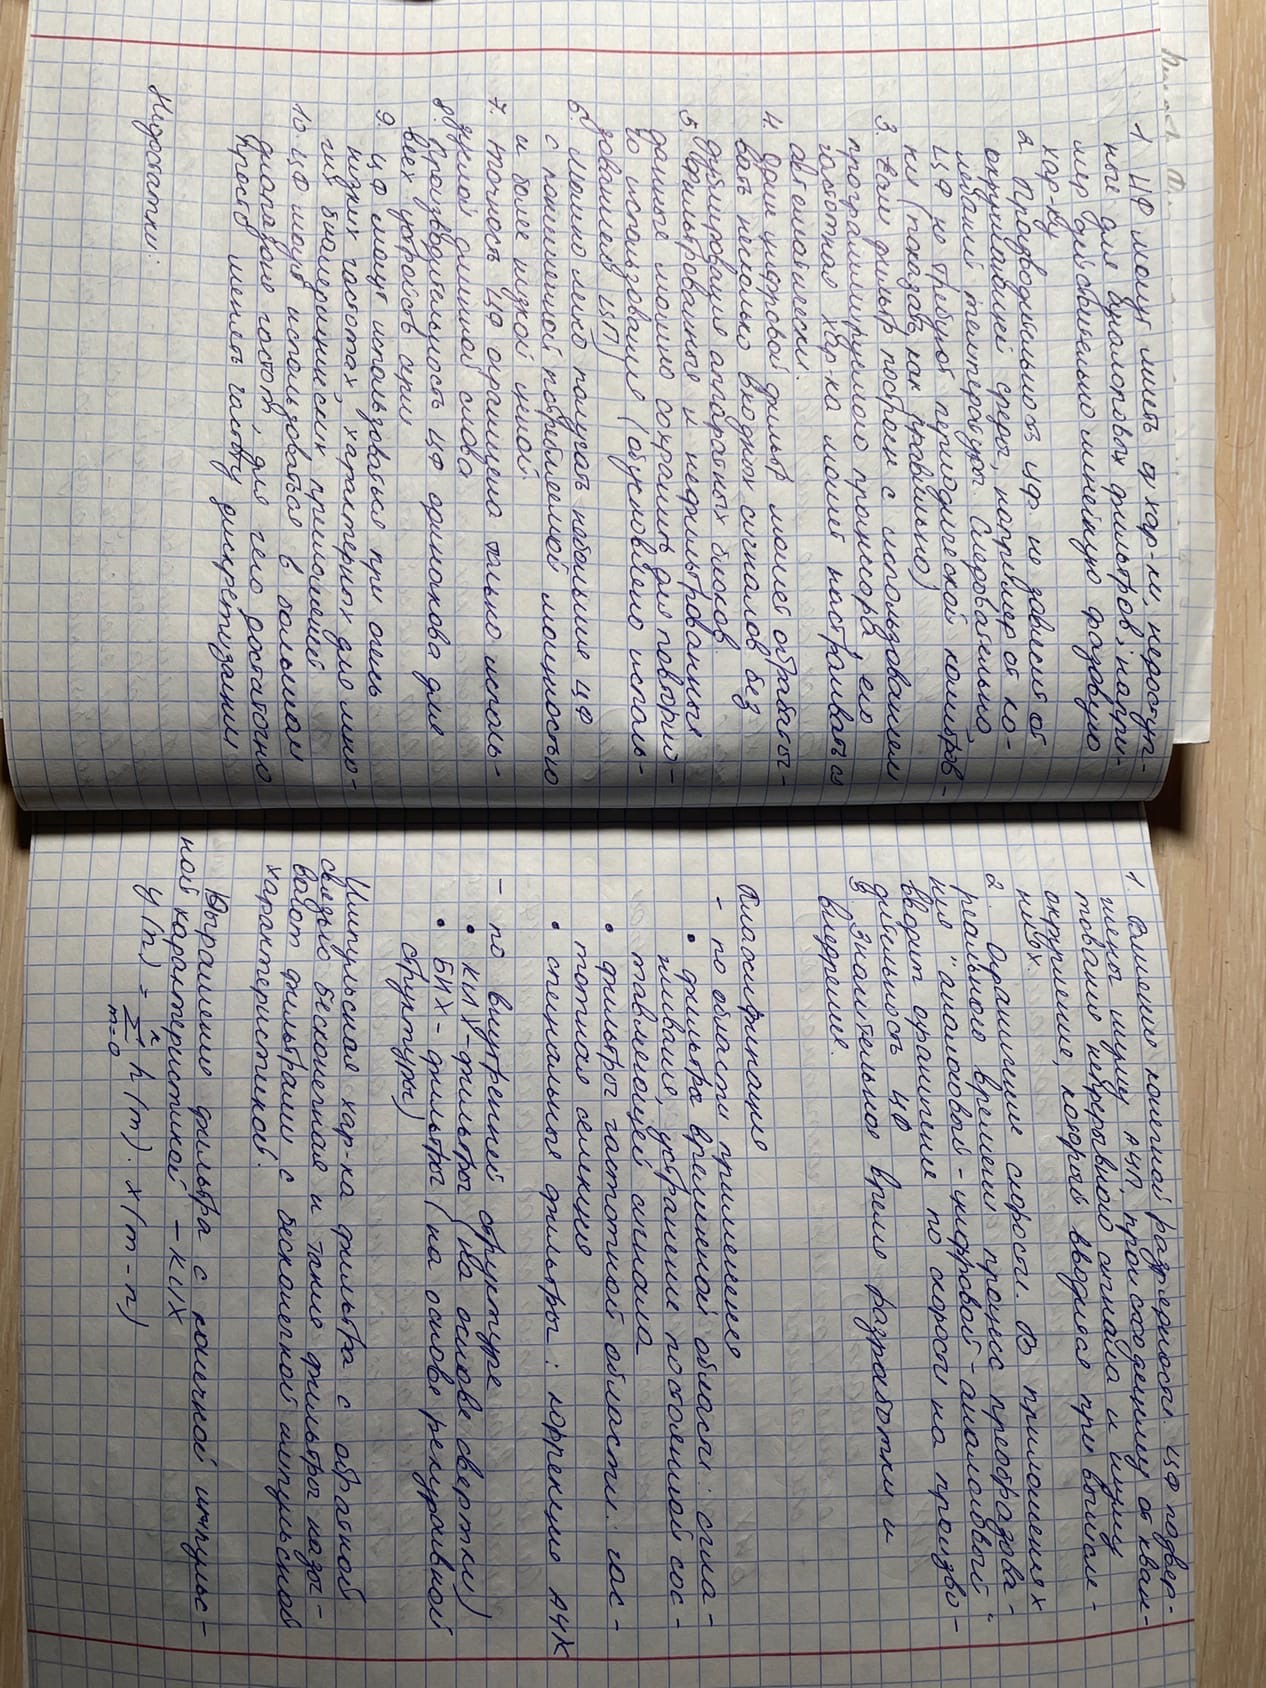 1. ЦФ могут иметь хар-ки, недоступ-
ные для аналоговых фильтров; напри-
мер действительно линейную фазовую
хар-ку
2. Производительность ЦФ не зависит от
окружающей среды, например от ко-
лебаний температуры. Следовательно,
ЦФ не требуют периодической калибров-
ки (показать как правильно)
3. Если фильтр построен с использованием
программируемого процессора, его
частотная хар-ка может настраиваться
автоматически.
4. Один цифровой фильтр может обрабаты-
вать несколько входных сигналов без
дублирования аппаратных блоков.
5. Фильтрованные и нефильтрованные
данные можно сохранить для повторно-
го использования (обусловлено исполь-
зованием ЦП)
6. Можно легко получать небольшие ЦФ
с пониженной потребляемой мощностью
и более низкой ценой.
7. Точность ЦФ ограничена только исполь-
зуемой длинной слова
8. Производительность ЦФ одинакова для
всех устройств серии
9. ЦФ могут использоваться при очень
низких частотах, характерных для мно-
гих биомедицинских приложений
10. ЦФ могут использоваться в большом
диапазоне частот, для чего достаточно
просто менять частоту дискретизации
Недостатки:
1. Влияние конечной разрядности. ЦФ подвер-
жены шуму АЦП, происходящему от кван-
тования непрерывного сигнала и шуму
округление, который вводится при вычисле-
ниях.
2. Ограничение скорости. В приложениях
реального времени процесс преобразова-
ния "аналоговый-цифровой-аналоговый"
вводит ограничение по скорости на произво-
дительность ЦФ
3. Значительное время разработки и
внедрения.
Классификация
- по области применения
• фильтра временной области: сгла-
живание, устранение постоянной сос-
тавляющей сигнала
• фильтры частотной области: час-
тотная селекция
• специальные фильтры: коррекция АЧХ
- по внутренней структуре
• КИХ-фильтры (на основе свертки)
• БИХ-фильтры (на основе рекурсивной
структуры)
Импульсная хар-ка фильтра с обратной
связью бесконечная и такие фильтры назы-
вают фильтрами с бесконечной импульсной
характеристикой.
Выражение фильтра с конечной импульс-
ной характеристикой - КИХ
y(n) = Σ h(m) · x(m-n)
m=0